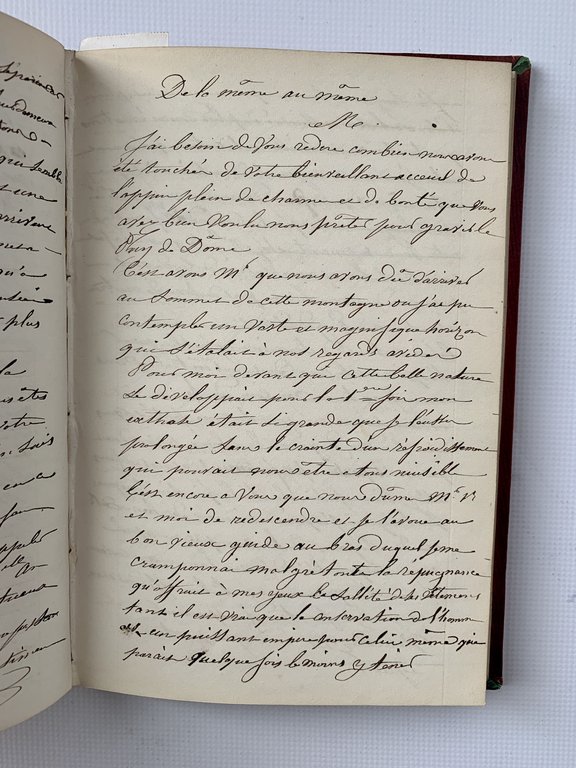 De la même au même
M.
J'ai besoin de vous redire combien nous avons
été touchés de votre bienveillant acceuil de
l'appui plein de charme et de bonté que vous
avez bien voulu nous prêter pour gravir le
Puy de Dôme
C'est à vous Mr que nous avons dû d'arriver
au sommet de cette montagne ou j'ai pu
contempler un vaste et magnifique horizon
qui s'étalait à nos regards avides
Pour moi devant que cette belle nature
se développait pour la 1ere fois mon
exthase était si grande que je l'eusse
prolongée sans la crainte d'un refroidissement
qui pouvait nous être a tous nuisible
C'est encore a vous que nous dûmes Mr V.
et moi de redescendre et je l'avoue au
bon vieux guide au bras duquel je me
cramponnai malgré toute la répugnance
qu'offrait à mes yeux la salleté de ses vêtements
tant il est vrai que la conservation de l'homme
est un puissant empire pour celui même que
parait quelque fois le moins y tenir